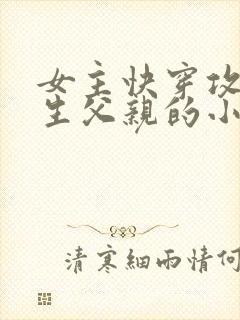 女主快穿攻
生父親的小
清寒細雨情何